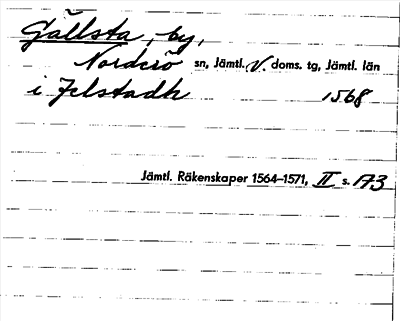 Gällsta, by,
Norderö sn, Jämtl. V. doms. tg, Jämtl. län
i Jelstadh 1568
Jämtl. Räkenskaper 1564-1571, II s. 173